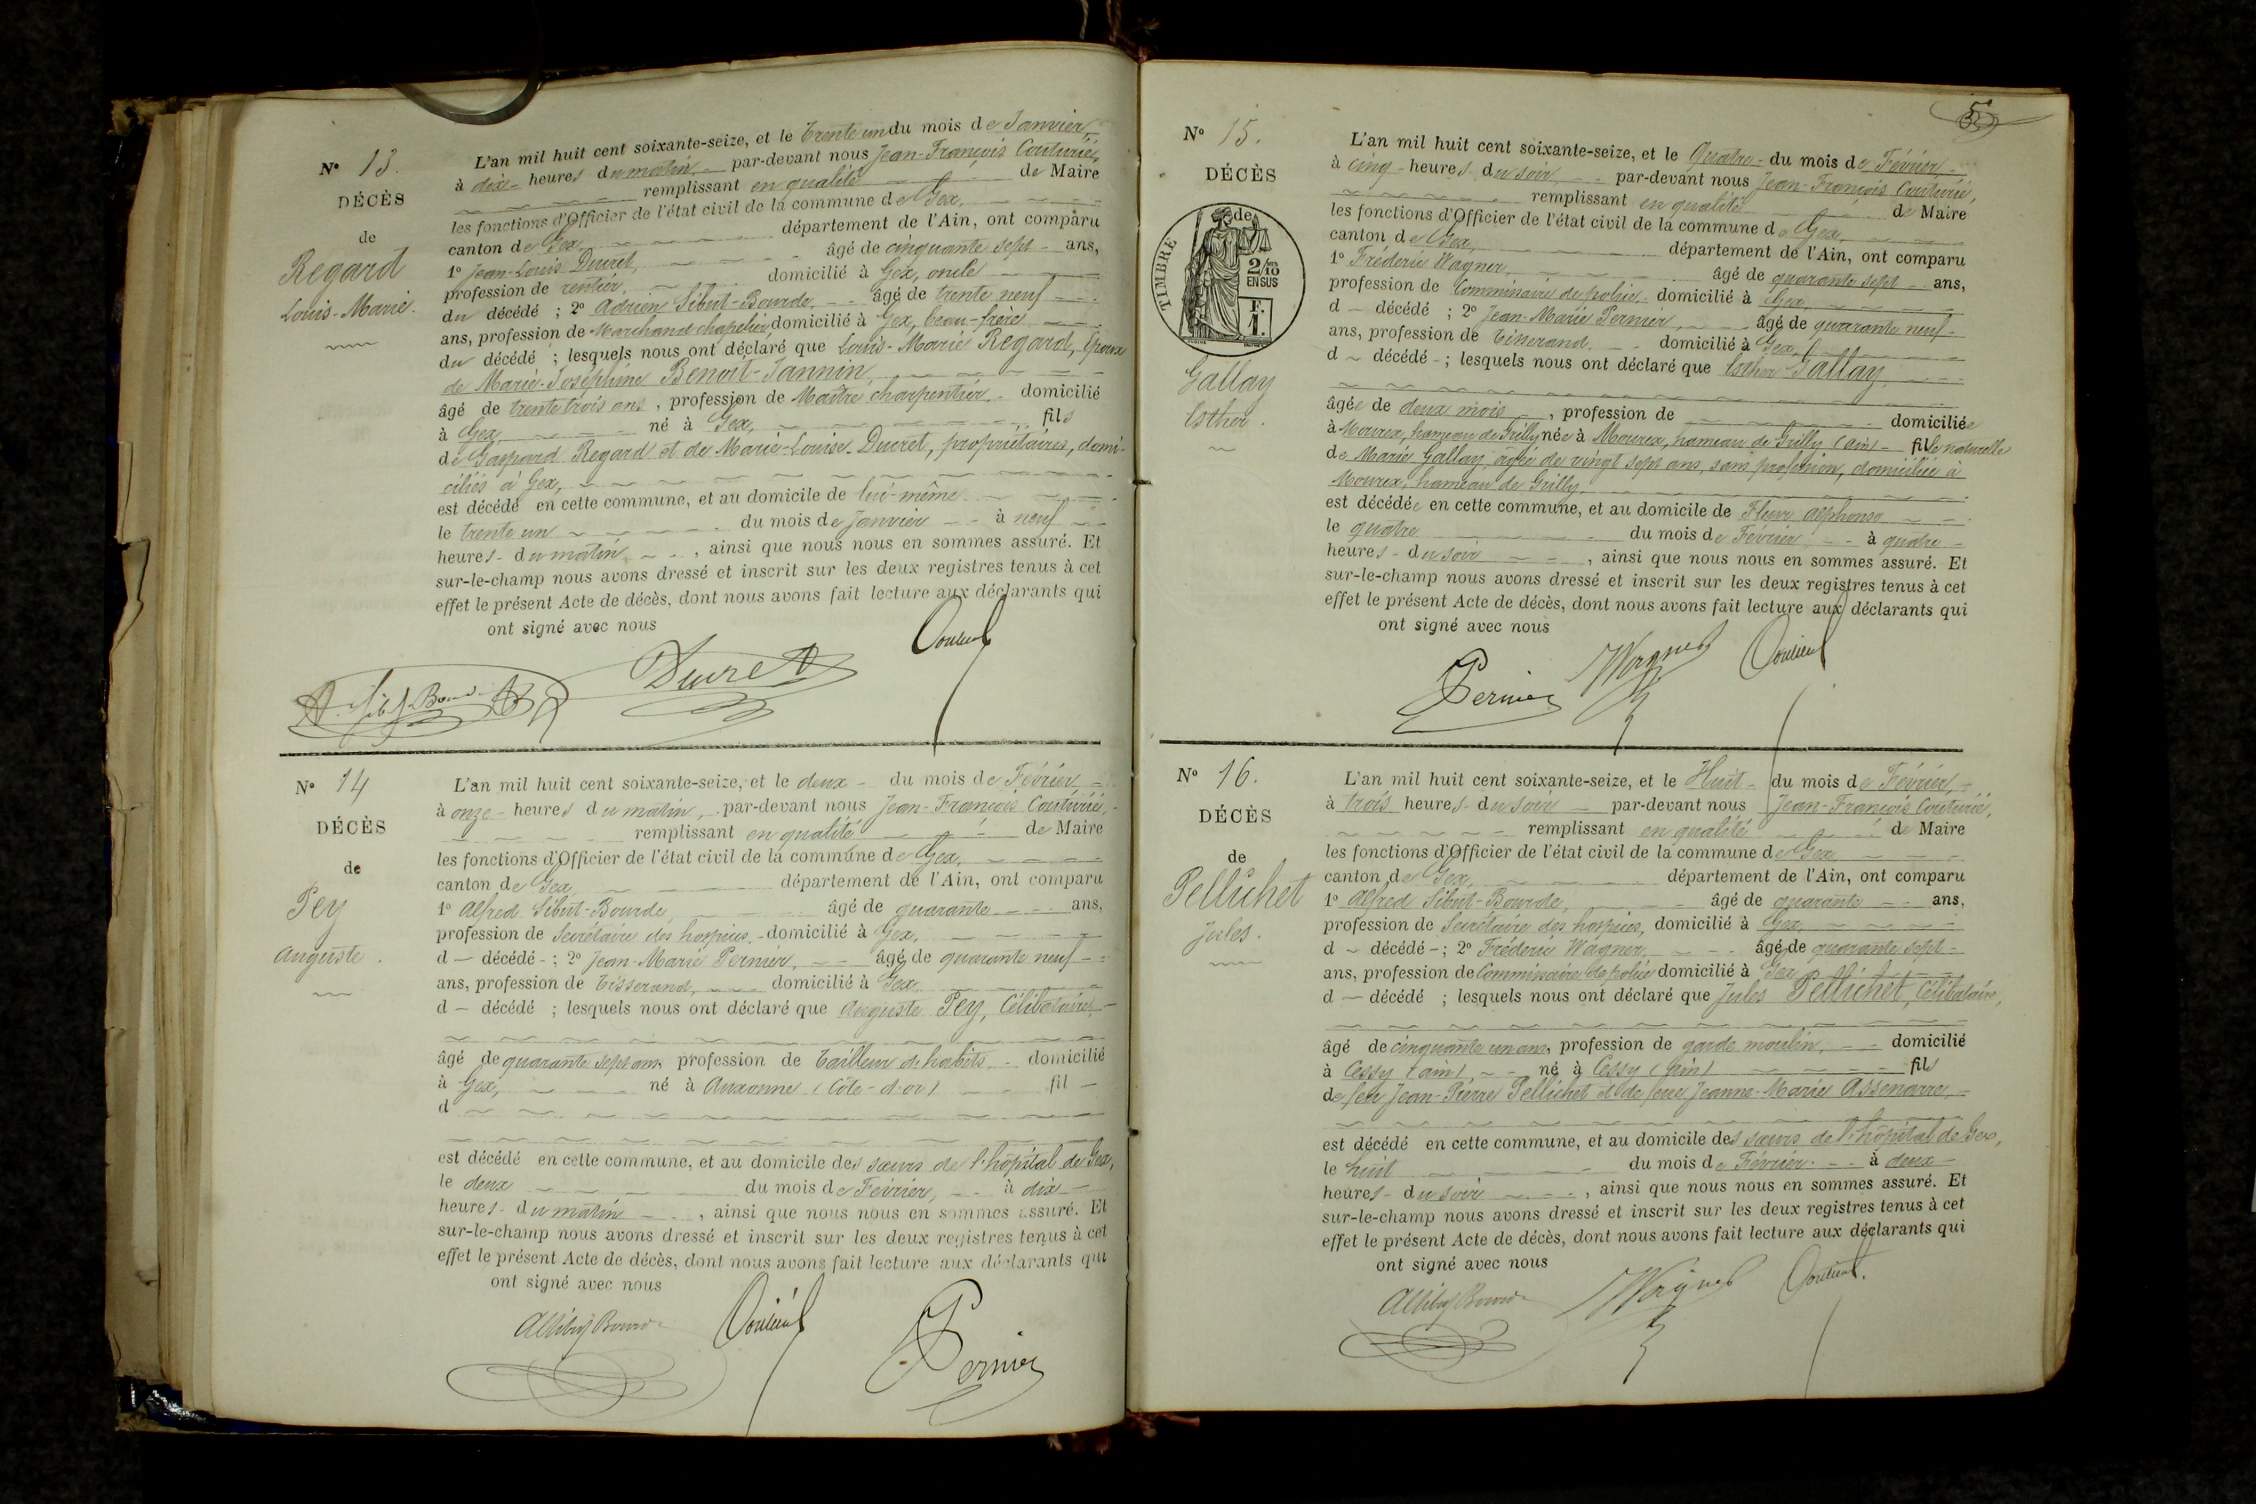 N° 13.
DÉCÈS
de
Regard
Louis-Marie.
L'an mil huit cent soixante-seize, et le Trente un du mois de Janvier,
à dix heures du matin, par-devant nous Jean-François Couturié,
remplissant en qualité de Maire
les fonctions d'Officier de l'état civil de la commune de Gex,
canton de Gex, département de l'Ain, ont comparu
1° Jean-Louis Ducret, âgé de cinquante sept ans,
profession de rentier, domicilié à Gex, oncle
du décédé ; 2° Adrien Sibut-Bourde, âgé de trente neuf
ans, profession de Marchand chapelier domicilié à Gex, beau-frère
du décédé ; lesquels nous ont déclaré que Louis-Marie Regard, Epoux
de Marie-Joséphine Benoit-Jannin,
âgé de trente trois ans, profession de Maître charpentier, domicilié
à Gex, né à Gex, fils
de Gaspard Regard et de Marie-Louise Ducret, propriétaires, domi-
ciliés à Gex,
est décédé en cette commune, et au domicile de lui-même
le trente un du mois de Janvier à neuf
heures du matin, ainsi que nous nous en sommes assuré. Et
sur-le-champ nous avons dressé et inscrit sur les deux registres tenus à cet
effet le présent Acte de décès, dont nous avons fait lecture aux déclarants qui
ont signé avec nous
A. Sibut-Bourde Ducret Couturié
N° 14
DÉCÈS
de
Pey
Auguste.
L'an mil huit cent soixante-seize, et le deux du mois de Février
à onze heures du matin, par-devant nous Jean-François Couturié,
remplissant en qualité de Maire
les fonctions d'Officier de l'état civil de la commune de Gex,
canton de Gex, département de l'Ain, ont comparu
1° Alfred Sibut-Bourde, âgé de quarante ans,
profession de Secrétaire des hospices, domicilié à Gex,
d décédé ; 2° Jean-Marie Pernier, âgé de quarante neuf
ans, profession de Tisserand, domicilié à Gex
d décédé ; lesquels nous ont déclaré que Auguste Pey, Célibataire,
âgé de quarante sept ans, profession de Tailleur d'habits domicilié
à Gex, né à Auxonne (Côte-d'or) fil
d
est décédé en cette commune, et au domicile des sœurs de l'hôpital de Gex,
le deux du mois de Février, à dix
heures du matin, ainsi que nous nous en sommes assuré. Et
sur-le-champ nous avons dressé et inscrit sur les deux registres tenus à cet
effet le présent Acte de décès, dont nous avons fait lecture aux déclarants qui
ont signé avec nous
A Sibut Bourde Couturié Pernier
N° 15.
DÉCÈS
de
TIMBRE
2/10 EN SUS
F. 1.
Gallay
Esther.
L'an mil huit cent soixante-seize, et le Quatre du mois de Février,
à cinq heures du soir, par-devant nous Jean-François Couturié,
remplissant en qualité de Maire
les fonctions d'Officier de l'état civil de la commune de Gex,
canton de Gex, département de l'Ain, ont comparu
1° Fréderic Wagner, âgé de quarante sept ans,
profession de Commissaire de police, domicilié à Gex,
d décédé ; 2° Jean-Marie Pernier, âgé de quarante neuf
ans, profession de Tisserand, domicilié à Gex,
d décédé ; lesquels nous ont déclaré que Esther Gallay,
âgée de deux mois, profession de domiciliée
à Mourex, hameau de Grilly née à Mourex, hameau de Grilly (ain) fille naturelle
de Marie Gallay, agée de vingt sept ans, sans profession, domiciliée à
Mourex, hameau de Grilly,
est décédée en cette commune, et au domicile de Fleur Alphonse
le quatre du mois de Février à quatre
heures du soir, ainsi que nous nous en sommes assuré. Et
sur-le-champ nous avons dressé et inscrit sur les deux registres tenus à cet
effet le présent Acte de décès, dont nous avons fait lecture aux déclarants qui
ont signé avec nous
Pernier Wagner Couturié
N° 16.
DÉCÈS
de
Pellichet
Jules.
L'an mil huit cent soixante-seize, et le Huit du mois de Février,
à trois heures du soir par-devant nous Jean-François Couturié,
remplissant en qualité de Maire
les fonctions d'Officier de l'état civil de la commune de Gex
canton de Gex, département de l'Ain, ont comparu
1° Alfred Sibut-Bourde, âgé de quarante ans,
profession de Secrétaire des hospices, domicilié à Gex,
d décédé ; 2° Fréderic Wagner, âgé de quarante sept
ans, profession de Commissaire de police domicilié à Gex
d décédé ; lesquels nous ont déclaré que Jules Pellichet, Célibataire,
âgé de cinquante un ans, profession de garde moulin, domicilié
à Cessy (ain), né à Cessy (ain) fils
de feu Jean-Pierre Pellichet et de feue Jeanne-Marie Assenarre,
est décédé en cette commune, et au domicile des sœurs de l'hôpital de Gex,
le huit du mois de Février à deux
heures du soir, ainsi que nous nous en sommes assuré. Et
sur-le-champ nous avons dressé et inscrit sur les deux registres tenus à cet
effet le présent Acte de décès, dont nous avons fait lecture aux déclarants qui
ont signé avec nous
A Sibut Bourde Wagner Couturié